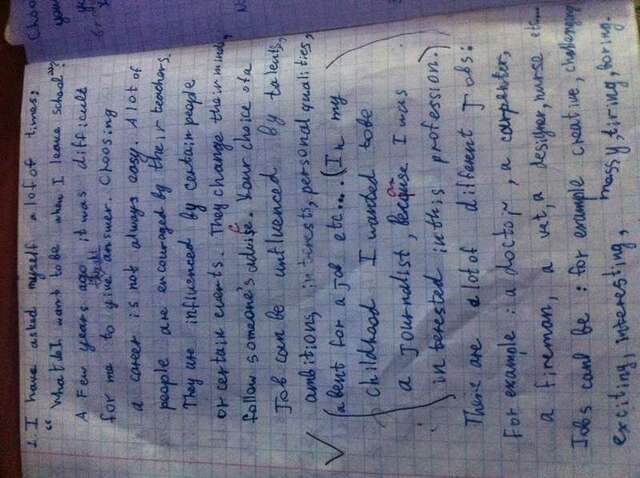 1. I have asked myself a lot of times:
"What do I want to be when I leave school?"
A Few years ago it was difficult
for me to give answer. Choosing
a career is not always easy. A lot of
people are encouraged by their teachers.
They are influenced by certain people
or certain events. They change their mind,
follow someone's advise. Your choice of a
Job can be influenced by talents,
ambitions, interests, personal qualities,
a bent for a job etc... (In my
childhood I wanted to be
a journalist, because I was
interested in this profession.)
There are a lot of different Jobs:
For example: a doctor, a carpenter,
a fireman, a vet, a designer, nurse etc...
Jobs can be: for example creative, challenging
exciting, interesting, messy, tiring, boring.